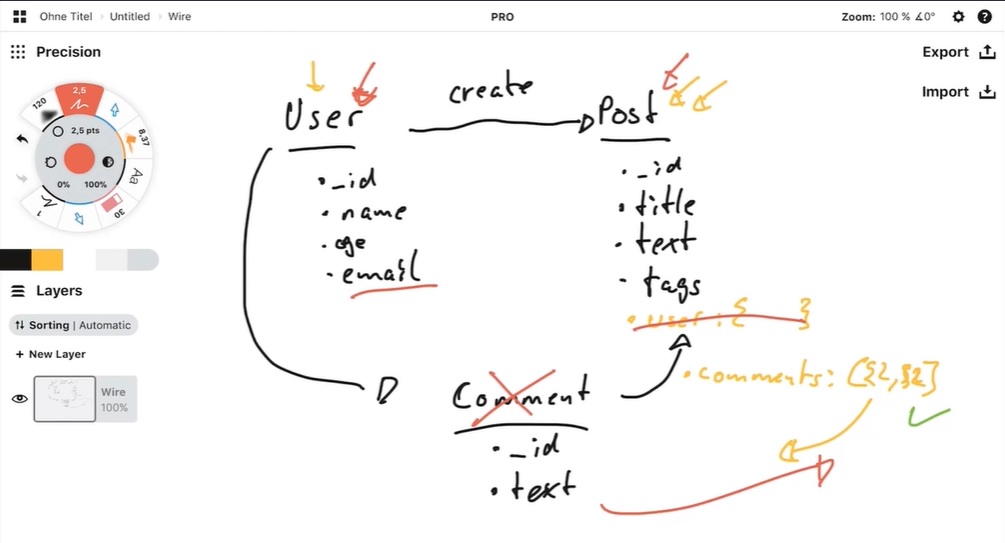 Ohne Titel > Untitled > Wire
PRO
Zoom: 100 % ∡0°
Precision
Export
Import
2,5
120
8,37
2,5 pts
Aa
0% 100%
30
1
Layers
Sorting | Automatic
+ New Layer
Wire
100%
User
create
Post
• _id
• name
• age
• email
• _id
• title
• text
• tags
• user : { }
• comments: [{},{}]
Comment
• _id
• text